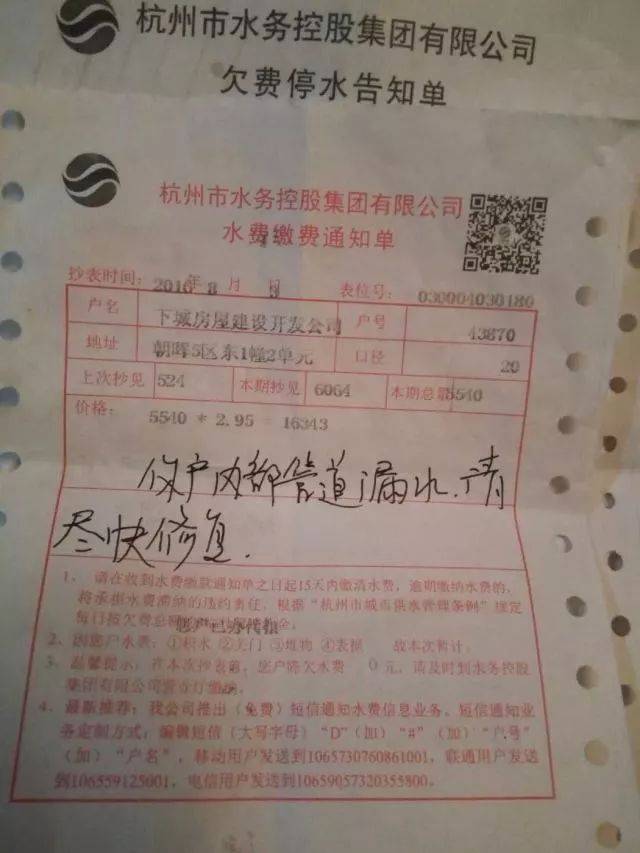 杭州市水务控股集团有限公司
欠费停水告知单
杭州市水务控股集团有限公司
水费缴费通知单
抄表时间: 2016年 8 月 9 日 表位号: 030004030180
户名 下城房屋建设开发公司 户号 43870
地址 朝晖5区东1幢2单元 口径 20
上次抄见 524 本期抄见 6064 本期总量 5540
价格: 5540 * 2.95 = 16343
你户内部管道漏水.请
尽快修复.
1、请在收到水费缴款通知单之日起15天内缴清水费，逾期缴纳水费的，
将承担水费滞纳的违约责任，根据“杭州市城市供水管理条例”规定
每日按欠费总额
您户已办代扣
2、因您户水表：①积水 ②关门 ③堆物 ④表损 故本次暂计。
3、温馨提示：在本次抄表前，您户终欠水费 0元，请及时到水务控股
集团有限公司营业厅缴纳。
4、最新推荐：我公司推出（免费）短信通知水费信息业务。短信通知业
务定制方式：编辑短信（大写字母）“D”（加）“#”（加）“户号”
（加）“户名”，移动用户发送到1065730760861001，联通用户发送
到106559125001，电信用户发送到10659057320355800。